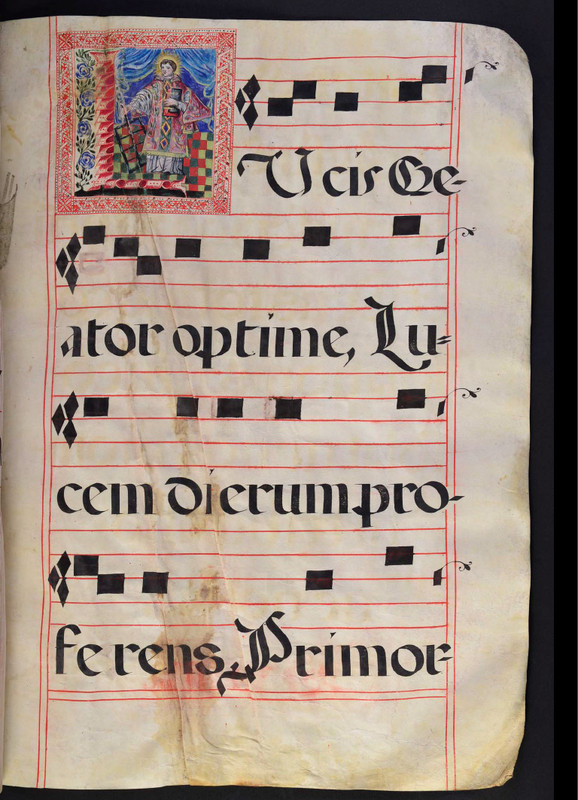 LUcis Cre-
ator optime, Lu=
cem dierum pro-
ferens, Primor-